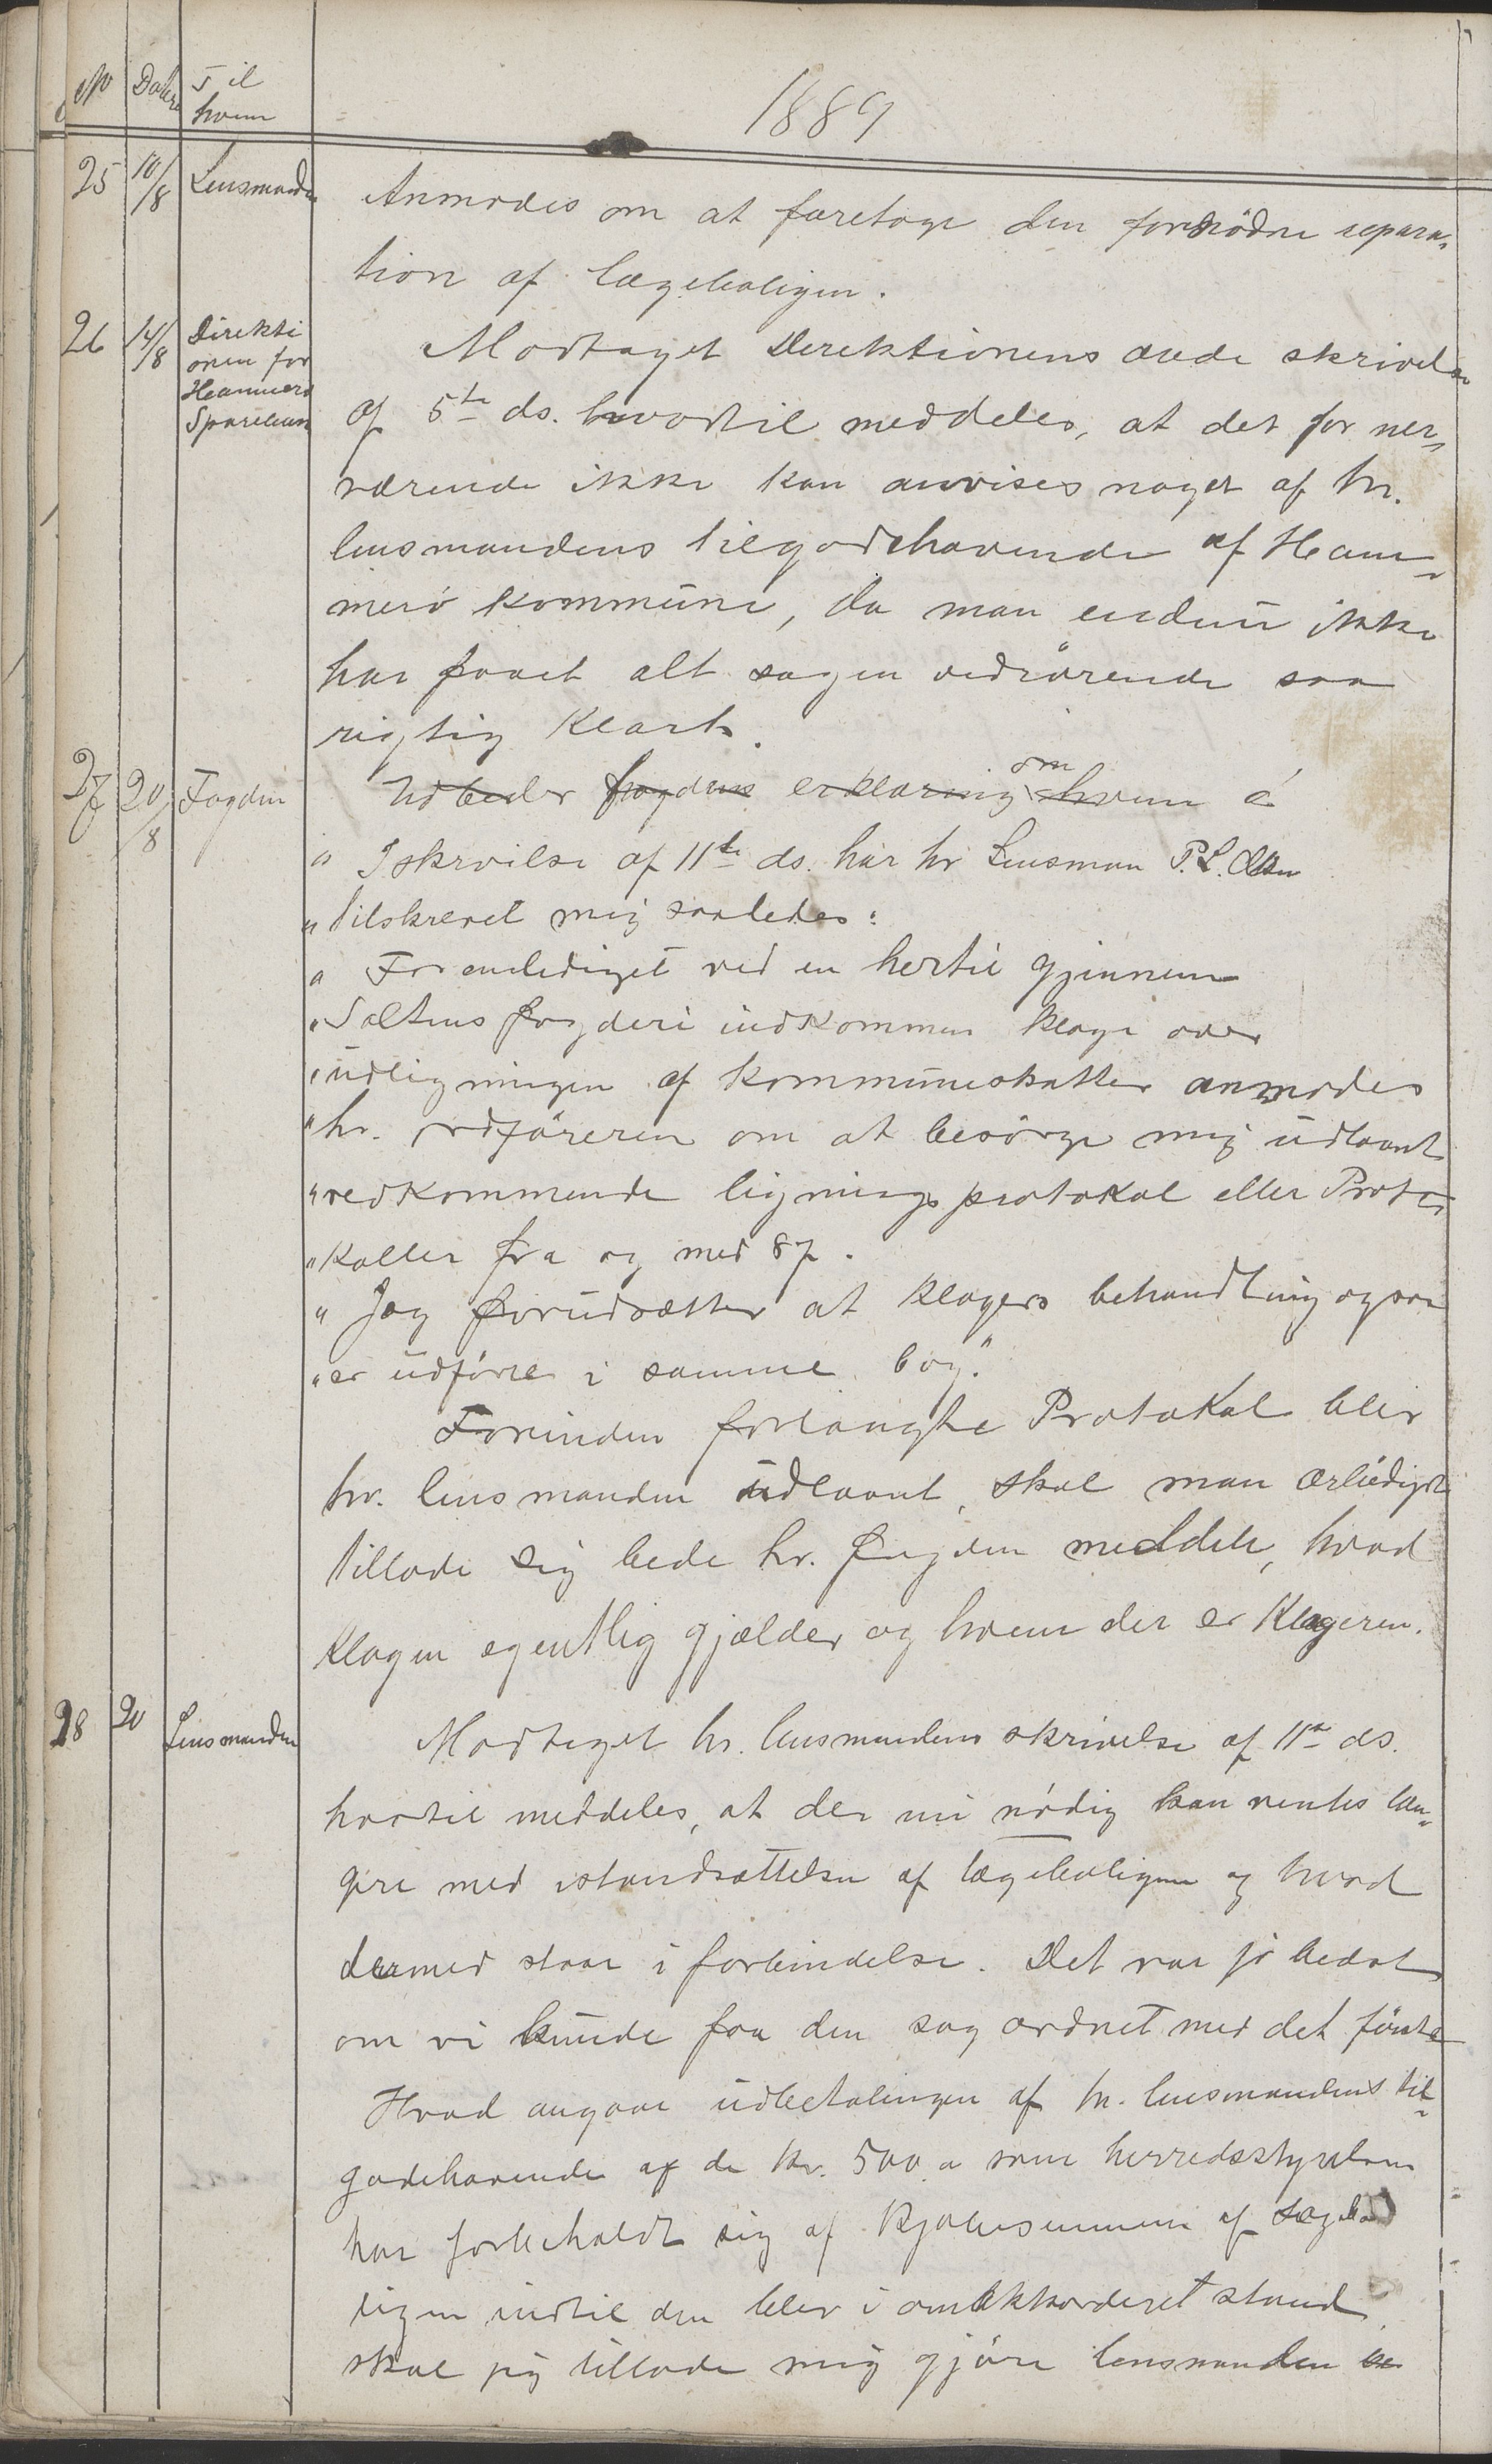 No Datum Til
hvem
1889
25 10/8 Lensmanden
Anmodes om at foretage den fornödne repara„
tion af lægeboligen.
26 14/8 Direkti
onen for
Hammerö
Spareban
Modtaget Direktionens ærede skrivelse
af 5te ds. hvortil meddeles, at det for nær„
værende ikke kan anvises noget af hr.
lensmandens tilgodehavende af Ham„
merö kommune, da man endnu ikke
har faaet alt sagen vedrörende saa
rigtig klart.
27 20/8 Fogden
Udbeder fogdens erklæring om hvem
" I skrivilse af 11te ds. har hr Lensman P. L. Olsen
" tilskrevet mig saaledes:
" Foranlediget ved en hertil gjennem
" Saltens fogderi indkommen klage over
" udligningen af kommuneskatter anmodes
" hr. ordföreren om at besörge mig udlaant
" vedkommende lignings protokol eller Proto„
" koller fra og med 87.
" Jeg forudsætter at klagers behandling ogsaa
" er udförte i samme bog."
Forinden forlangte Protokol blir
hr. lensmanden udlaant, skal man ærbödigst
tillade sig bede hr. fogden meddele, hvad
klagen egentlig gjælder og hvem der er klageren.
28 20 Lensmanden
Modtaget hr. lensmandens skrivelse af 11te ds.
hvortil meddeles, at der nu nödig kan ventes læn„
gere med istandsættelsen af lægeboligen og hvad
dermed staar i forbindelse. Det var jo bedst
om vi kunde faa den sag ordnet med det förste
Hvad angaar udbetalingen af hr. lensmandens til„
godehavende af de kr. 500 a som herredsstyrelsen
har forbeholdt sig af kjöbesummen af lægebo
ligen indtil den blev i omakkorderet stand,
skal jeg tillade mig gjöre lensmanden